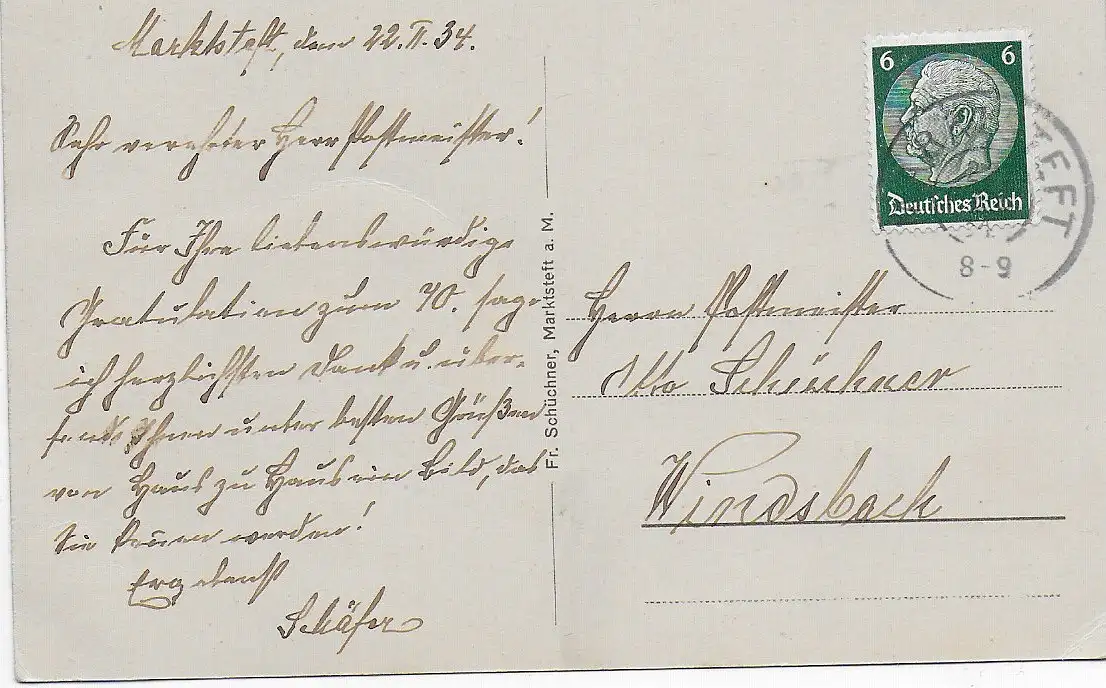 Marktsteft, den 22.II.34.
Sehr verehrter Herr Postmeister!
Für Ihre liebenswürdige
Gratulation zum 70. sage
ich herzlichsten Dank u. über-
sende Ihnen unter besten Grüßen
von Haus zu Haus ein Bild, das
Sie freuen werden!
Ergebenst
Schäfer
Fr. Schüchner, Marktsteft a. M.
6 6
Deutsches Reich
EFT
34
8-9
Herrn Postmeister
Otto Schüchner
Windsbach